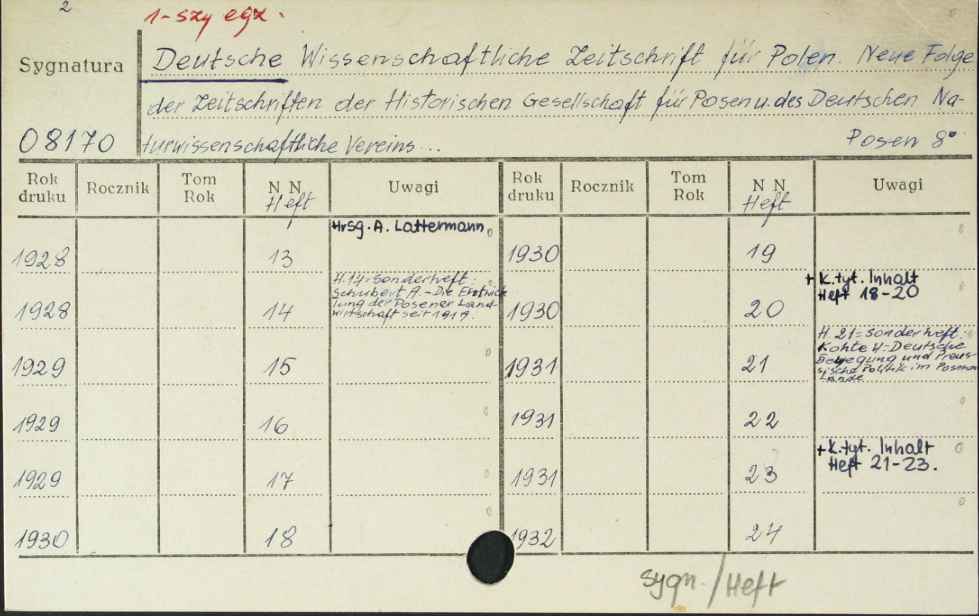 2
1-szy egz.
Sygnatura
08170
Deutsche Wissenschaftliche Zeitschrift für Polen. Neue Folge
der Zeitschriften der Historischen Gesellschaft für Posen u. des Deutschen Na-
turwissenschaftliche Vereins...
Posen 8°
Rok druku Rocznik Tom Rok N N. Heft Uwagi Rok druku Rocznik Tom Rok N N. Heft Uwagi
1928 13 Hrsg. A. Lattermann 1930 19
1928 14 H.14=Sonderheft.
Schubert A.-Die Entwick
lung der Posener Land-
wirtschaft seit 1919.
1930 20 + K.tyt. Inhalt
Heft 18-20
1929 15 1931 21 H. 21=Sonderheft.
Kohte H-Deutsche
Bewegung und Preus-
sische Politik im Posener
Lande
1929 16 1931 22
1929 17 1931 23 + K.tyt. Inhalt
Heft 21-23.
1930 18 1932 24
Sygn./Heft